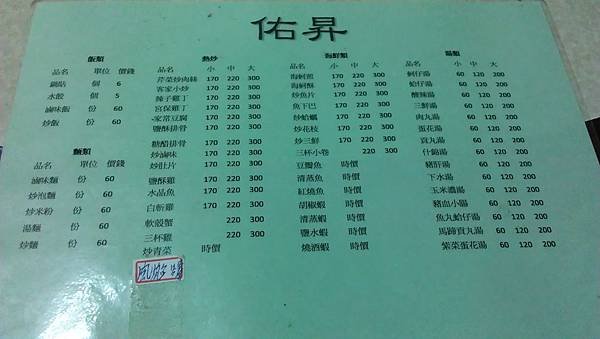 佑昇
飯類
品名 單位 價錢
鍋貼 個 6
水餃 個 5
滷味飯 份 60
炒飯 份 60
麵類
品名 單位 價錢
滷味麵 份 60
炒泡麵 份 60
炒米粉 份 60
湯麵 份 60
炒麵 份 60
熱炒
品名 小 中 大
芹菜炒肉絲 170 220 300
客家小炒 170 220 300
辣子雞丁 170 220 300
宮保雞丁 170 220 300
家常豆腐 170 220 300
鹽酥排骨 170 220 300
糖醋排骨 170 220 300
炒滷味 170 220 300
炒肚片 170 220 300
鹽酥雞 170 220 300
水晶魚 170 220 300
白斬雞 170 220 300
軟殼蟹 220 300
三杯雞 220 300
炒青菜 時價
海鮮類
品名 小 中 大
海蚵煎 170 220 300
海蚵酥 170 220 300
炒魚片 170 220 300
魚下巴 170 220 300
炒蛤蠣 170 220 300
炒花枝 170 220 300
炒三鮮 170 220 300
三杯小卷 220 300
豆瓣魚 時價
清蒸魚 時價
紅燒魚 時價
胡椒蝦 時價
清蒸蝦 時價
鹽水蝦 時價
燒酒蝦 時價
湯類
品名 小 中 大
蚵仔湯 60 120 200
蛤仔湯 60 120 200
酸辣湯 60 120 200
三鮮湯 60 120 200
肉丸湯 60 120 200
蛋花湯 60 120 200
貢丸湯 60 120 200
什錦湯 60 120 200
豬肝湯 60 120 200
下水湯 60 120 200
玉米濃湯 60 120 200
豬血小腸 60 120 200
魚丸蛤仔湯 60 120 200
馬蹄貢丸湯 60 120 200
紫菜蛋花湯 60 120 200